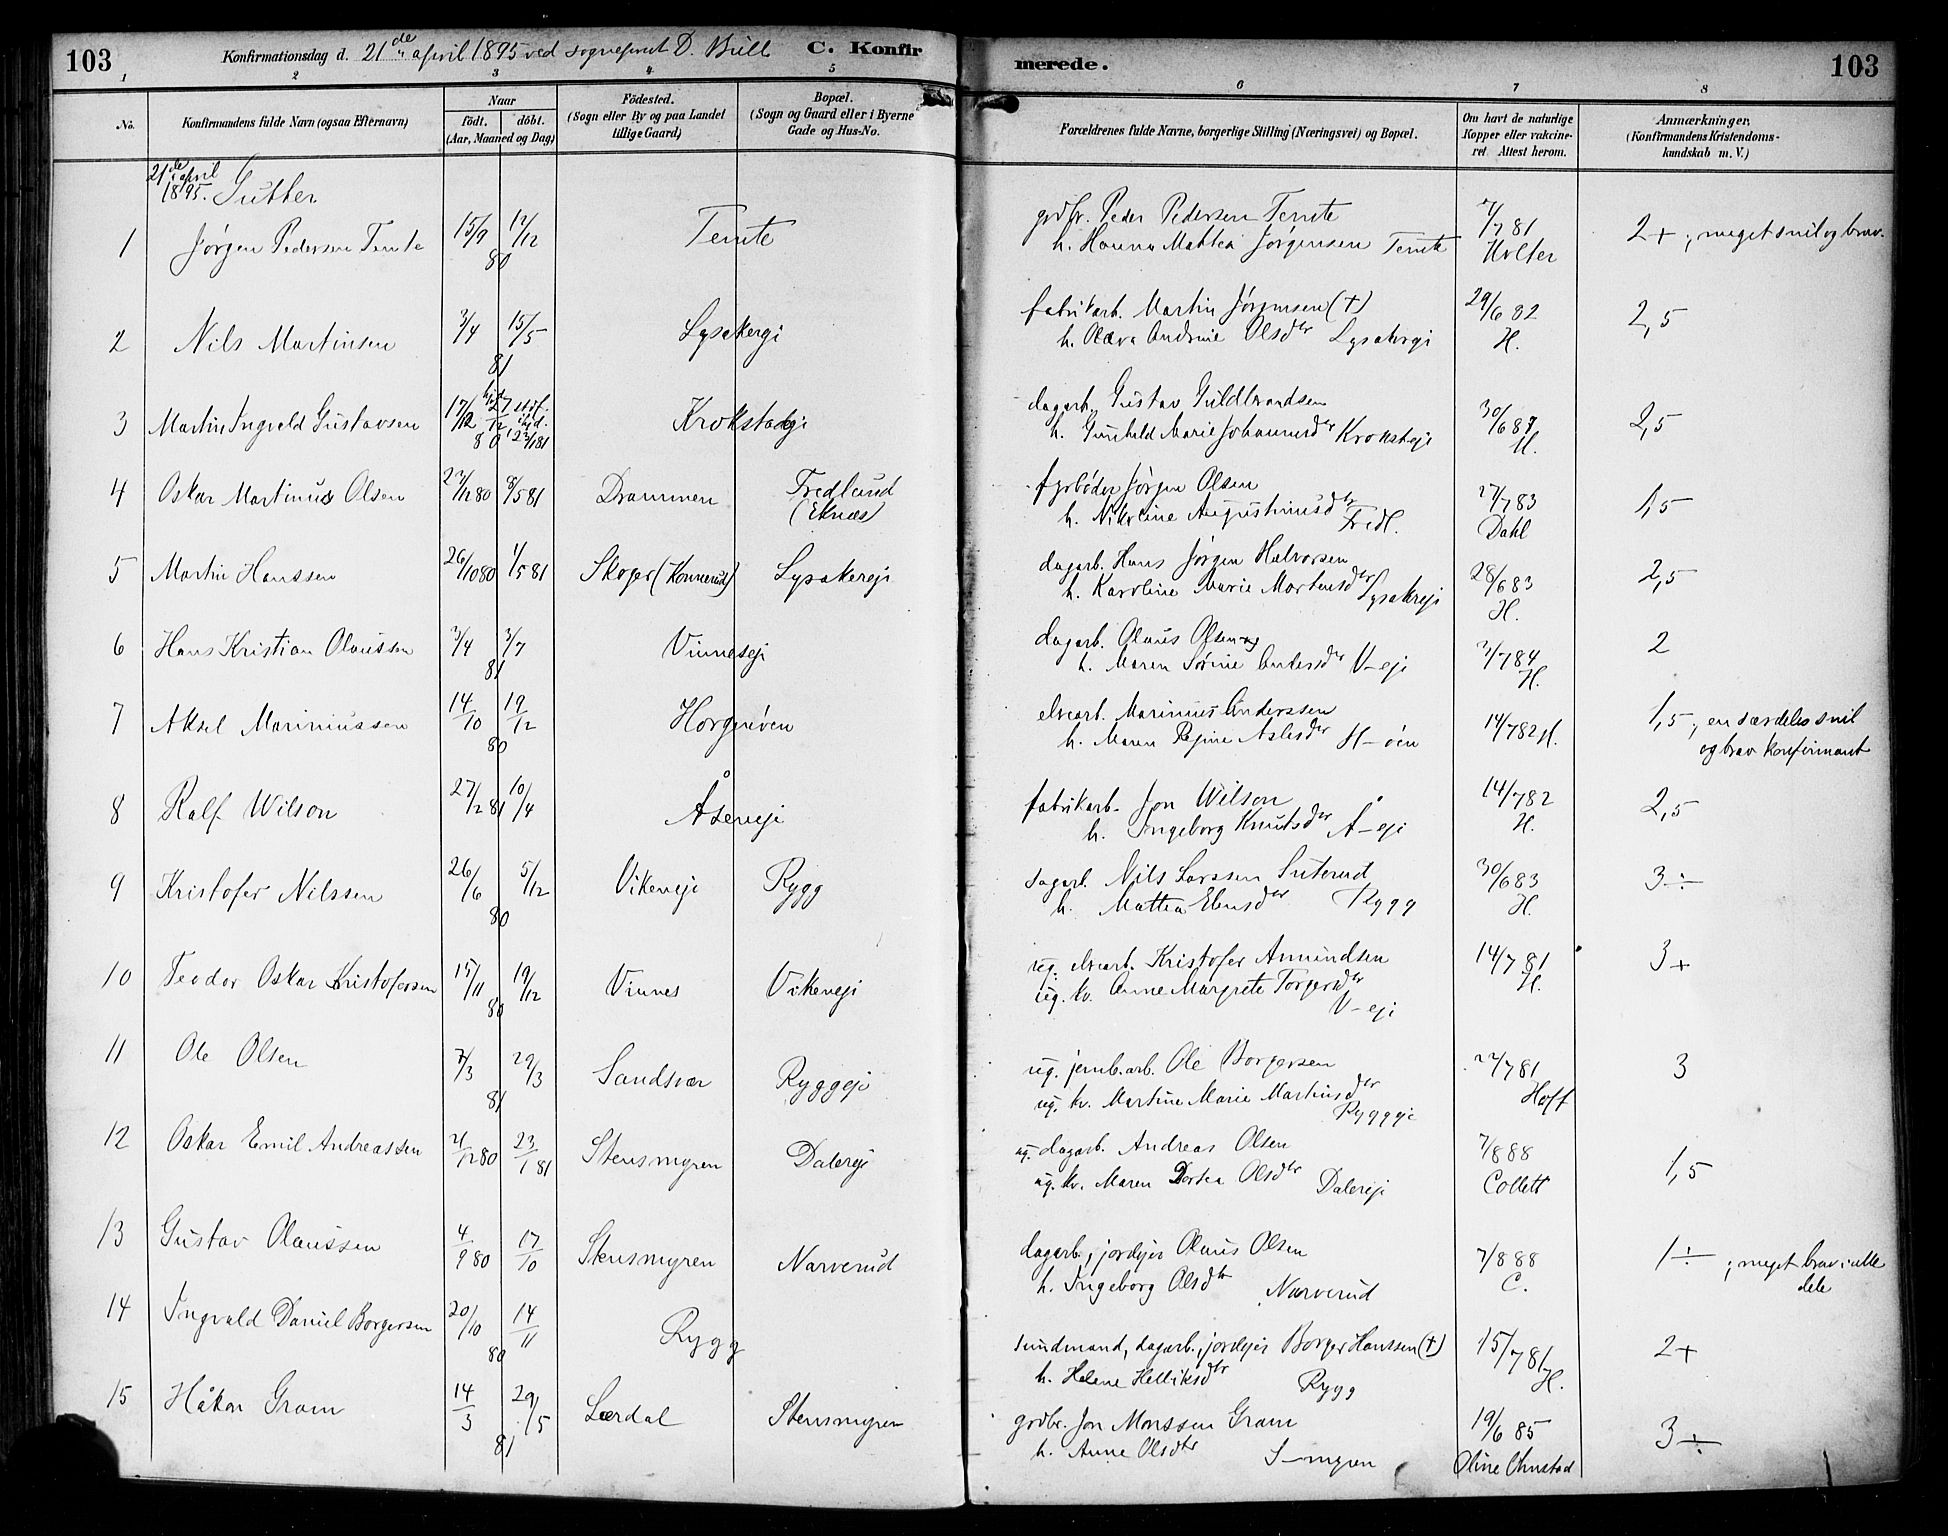 103 Konfirmationsdag d. 21de april 1895 ved sogneprest D. Bull C. Konfir
merede. 103
1 2 3 4 5 6 7 8
No. Konfirmandens fulde Navn (ogsaa Efternavn) Naar født. døbt. (Aar, Maaned og Dag) Födested. (Sogn eller By og paa Landet tillige Gaard) Bopæl. (Sogn og Gaard eller i Byerne Gade og Hus-No. Forældrenes fulde Navne, borgerlige Stilling (Næringsvei) og Bopæl. Om havt de naturlige Kopper eller vakcineret Attest herom. Anmærkninger, (Konfirmandens Kristendomskundskab m. V.)
21de april 1895. Gutter
1 Jørgen Pedersen Temte 15/9 12/12 80 Temte grdbr. Peder Pedersen Temte 7/7 81 2+; meget snil og brav.
h. Hanna Mattea Jørgensen Temte Holter
2 Nils Martinsen 3/4 15/5 81 Lysakereji fabrikarb. Martin Jørgensen (†) 29/6 82 2,5
h. Olava Andrine Olsdtr Lysakereji H.
3 Martin Ingvald Gustavsen 17/12 80 Krokstadeji dagarb. Gustav Guldbrandsen 30/6 87 2,5
h. Gunhild Marie Johannesdtr Kroksteji H.
4 Oskar Martinus Olsen 27/12 80 8/5 81 Drammen Fredlund (Eknæs) fyrbøder Jørgen Olsen 27/7 83 1,5
h. Nikoline Augustinusdtr Fredl. Dahl
5 Martin Hanssen 26/10 80 1/5 81 Skoger (Konnerud) Lysakereji dagarb. Hans Jørgen Halvorsen 28/6 83 2,5
h. Karoline Marie Mortensdtr Lysakreji H.
6 Hans Kristian Olaussen 3/4 3/7 81 Vinneseji dagarb. Olaus Olsen og 3/7 84 2
h. Maren Sørine Andersdtr V-eji H.
7 Aksel Marinussen 14/10 19/12 80 Horgenøen elvearb. Marinus Anderssen 14/7 82 H. 1,5; en særdeles snil
h. Maren Regine Aslesdtr H-øen og brav konfirmant
8 Ralf Wilson 27/2 81 10/4 Åseneji fabrikarb. Jon Wilson 14/7 82 2,5
h. Ingeborg Knutsdtr Å-eji H.
9 Kristofer Nilssen 26/6 5/12 80 Vikeneji Rygg dagarb. Nils Larssen Suterud 30/6 83 3÷
h. Mattea Ebensdtr Rygg H.
10 Teodor Oskar Kristofersen 15/11 19/12 80 Vinnes Vikeneji ug. elvearb. Kristofer Amundsen 14/7 81 3+
ug. kv. Anne Margrete Torgersdtr H.
V-eji
11 Ole Olsen 7/3 29/3 81 Sandsvær Ryggeji ug. jernb.arb. Ole Borgersen 22/7 81 3
ug. kv. Martine Marie Martinsdtr Hoff
Ryggeji
12 Oskar Emil Andreassen 21/12 80 23/1 81 Stensmyren Dalereji ug. dagarb. Andreas Olsen 7/8 88 1,5
ug. kv. Maren Dortea Olsdtr Dalereji Collett
13 Gustav Olaussen 4/9 80 17/10 Stensmyren Narverud dagarb., jordejer Olaus Olsen 7/8 88 1÷; meget brav i alle
h. Ingeborg Olsdtr Narverud C. dele
14 Ingvald Daniel Borgersen 20/10 14/11 80 Rygg sundmand, dagarb., jordejer Borger Hanssen (†) 15/7 81 2+
h. Helene Helliksdtr Rygg H.
15 Håkon Gram 14/3 29/5 81 Lærdal Stensmyren grdbr. Jon Monssen Gram 19/6 85 3÷
h. Anne Olsdtr S-myren Oline Ohnstad